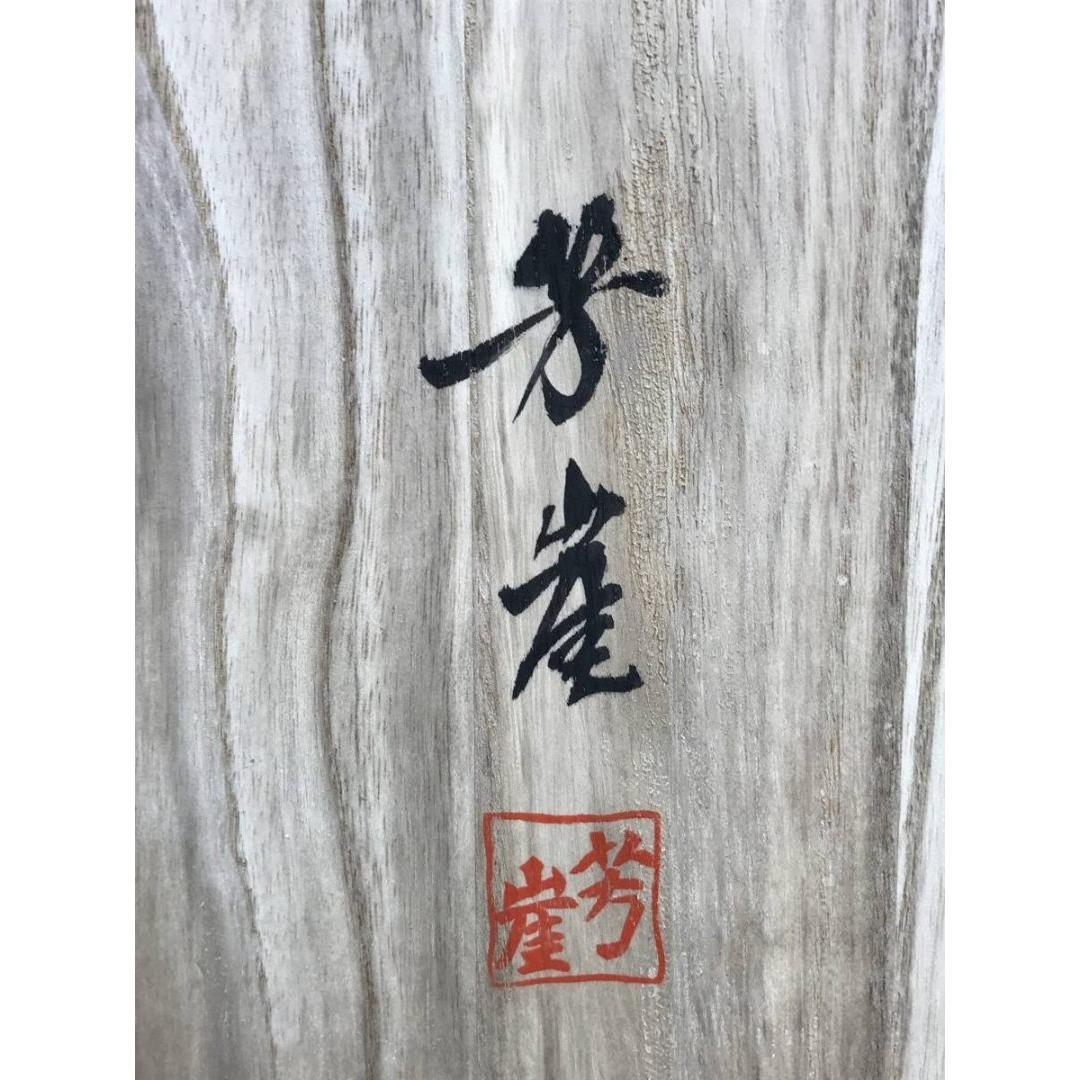 芳崖
芳崖